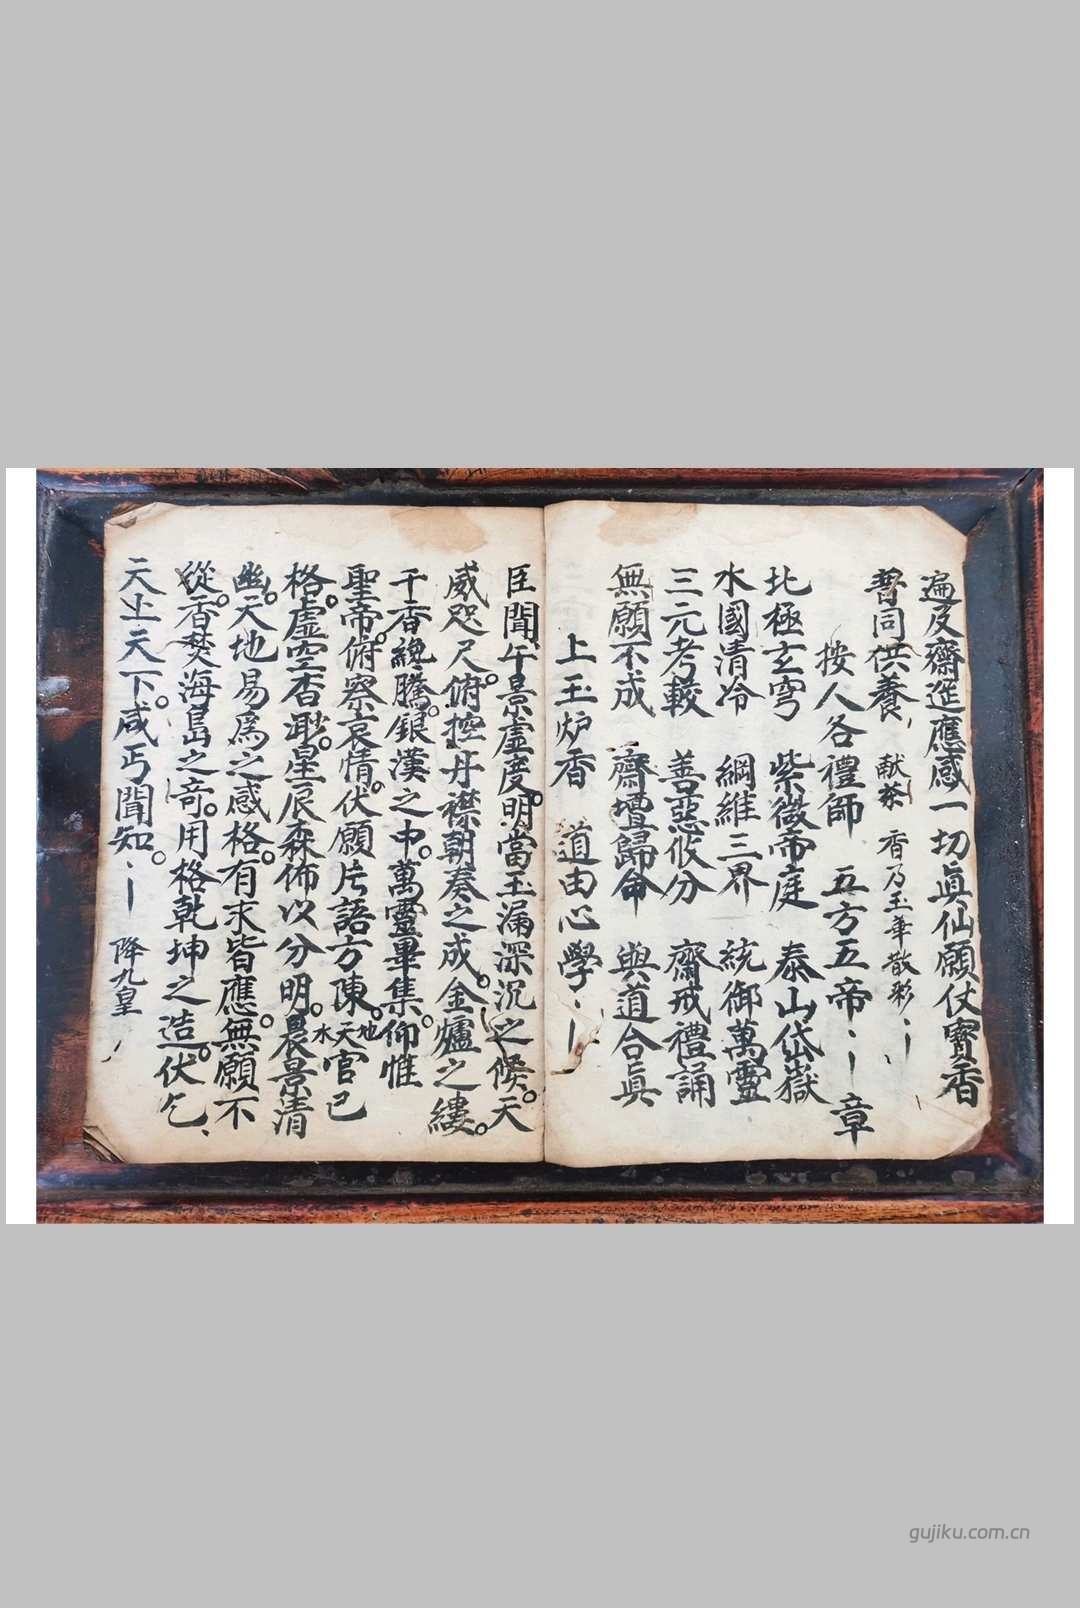 遍及齋進應感一切眞仙願仗寶香
普同供養 献茶 香乃玉華散彩
按人各禮師 五方五帝 章
北極玄穹 紫微帝庭 泰山岱嶽
水國清冷 綱維三界 統御萬靈
三元考較 善惡攸分 齋戒禮誦
無願不成 齋壇歸命 與道合眞
上玉炉香 道由心學
臣聞午景虛度。明當玉漏深沉之候。天
威咫尺。俯控丹襟朝奏之成。金爐之縷。
千香繞騰。銀漢之中。萬靈畢集。仰惟
聖帝。俯察哀情。伏願片語方陳。地天水官已
格。虛空杳渺。星辰森佈以分明。晨景清
幽。天地易爲之感格。有求皆應。無願不
從。香焚海島之奇。用格乾坤之造。伏乞
天上天下。咸丐聞知。 降九皇
gujiku.com.cn